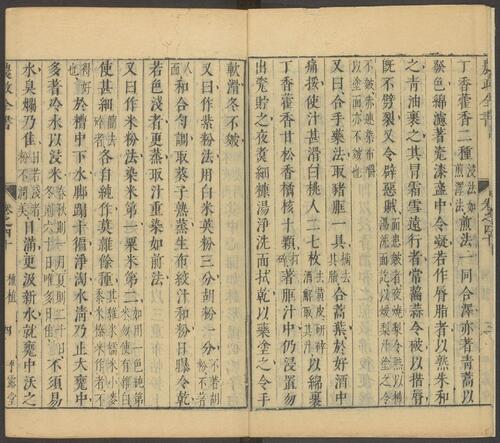 丁香藿香二種浸法如煎澤法煎法一同合澤亦著青蒿以
發色綿濾著瓷漆盞中令凝若作唇脂者以熟朱和
之青油裹之其冒霜雪遠行者常齧蒜令破以揩唇
既不劈裂又令辟惡賊面患皴者夜燒梨令熟以糠湯洗面訖以煖梨汁塗之令
不皴赤蓬染布嚼以塗面亦不皴也
又曰合手藥法取豬䏶一具摘去其脂合蒿葉於好酒中
痛挼使汁甚滑白桃人二七枚去黃皮研碎酒解取其汁以綿裹
丁香藿香甘松香橘核十顆打碎著䏶汁中仍浸置勿
出瓷貯之夜煮細糠湯淨洗面拭乾以藥塗之令手
軟滑冬不皴
又曰作紫粉法用白米英粉三分胡粉一分不著胡粉不著
人面和合勻調取葵子熟蒸生布絞汁和粉日曝令乾
若色淺者更蒸取汁重染如前法
又曰作米粉法粱米第一粟米第二如用一色純第一勿使有雜白
使甚細簡去碎者各自純作莫雜餘種其雜米糯米小麥黍米穄米作者不
得好也於槽中下水腳蹋十徧淨淘水清乃止大甕中
多著冷水以浸米春秋則一月夏則二十日冬則六十日唯多日佳不須易
水臭爛乃佳日若淺者粉不潤美日滿更汲新水就甕中沃之
農政全書
卷之四十
種植
四
平露堂